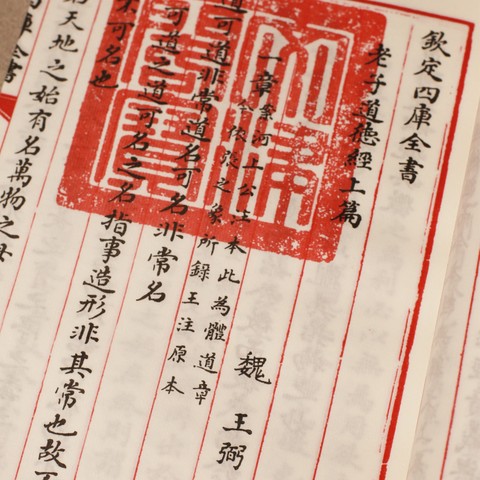 欽定四庫全書
老子道德經上篇
魏 王弼
一章
案河上公注本此為體道章
今依張之象所錄王注原本
道可道非常道名可名非常名
可道之道可名之名指事造形非其常也故不
不可名也
名天地之始有名萬物之母
庫全書